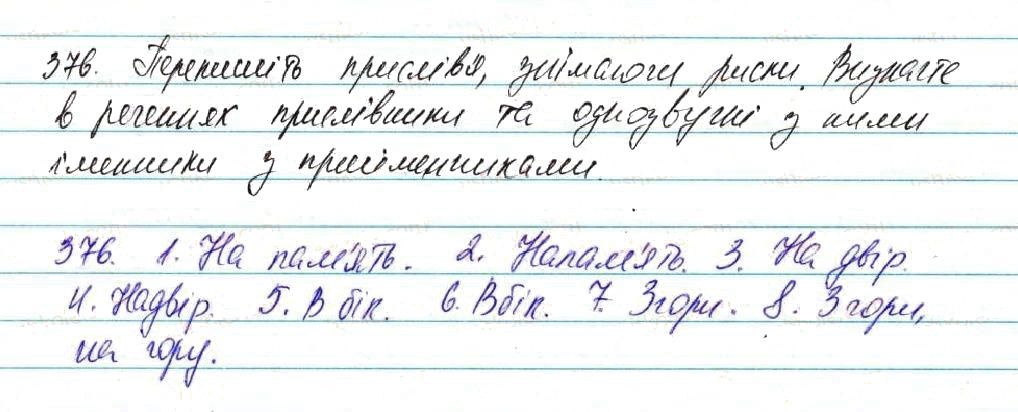 376. Перепишіть прислів'я, знімаючи риски. Визначте
в реченнях прислівники та однозвучні з ними
іменники з прийменниками.
376. 1. На пам'ять. 2. Напам'ять. 3. На двір.
4. Надвір. 5. В бік. 6. Вбік. 7. Згори. 8. З гори,
на гору.